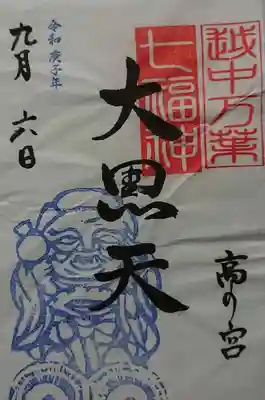 越中万葉
七福神
大黒天
高の宮
令和庚子年
九月六日